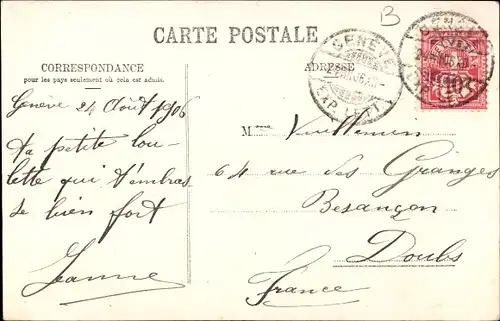 B
CARTE POSTALE
CORRESPONDANCE
pour les pays seulement où cela est admis.
ADRESSE
GENÈVE
EXP. LETT.
Genève 24 Août 1906
ta petite lou-
lette qui t'embras
se bien fort
Jeanne
M Vuillemin
64 rue des Granges
Besançon
Doubs
France
GENÈVE
HELVETIA
10